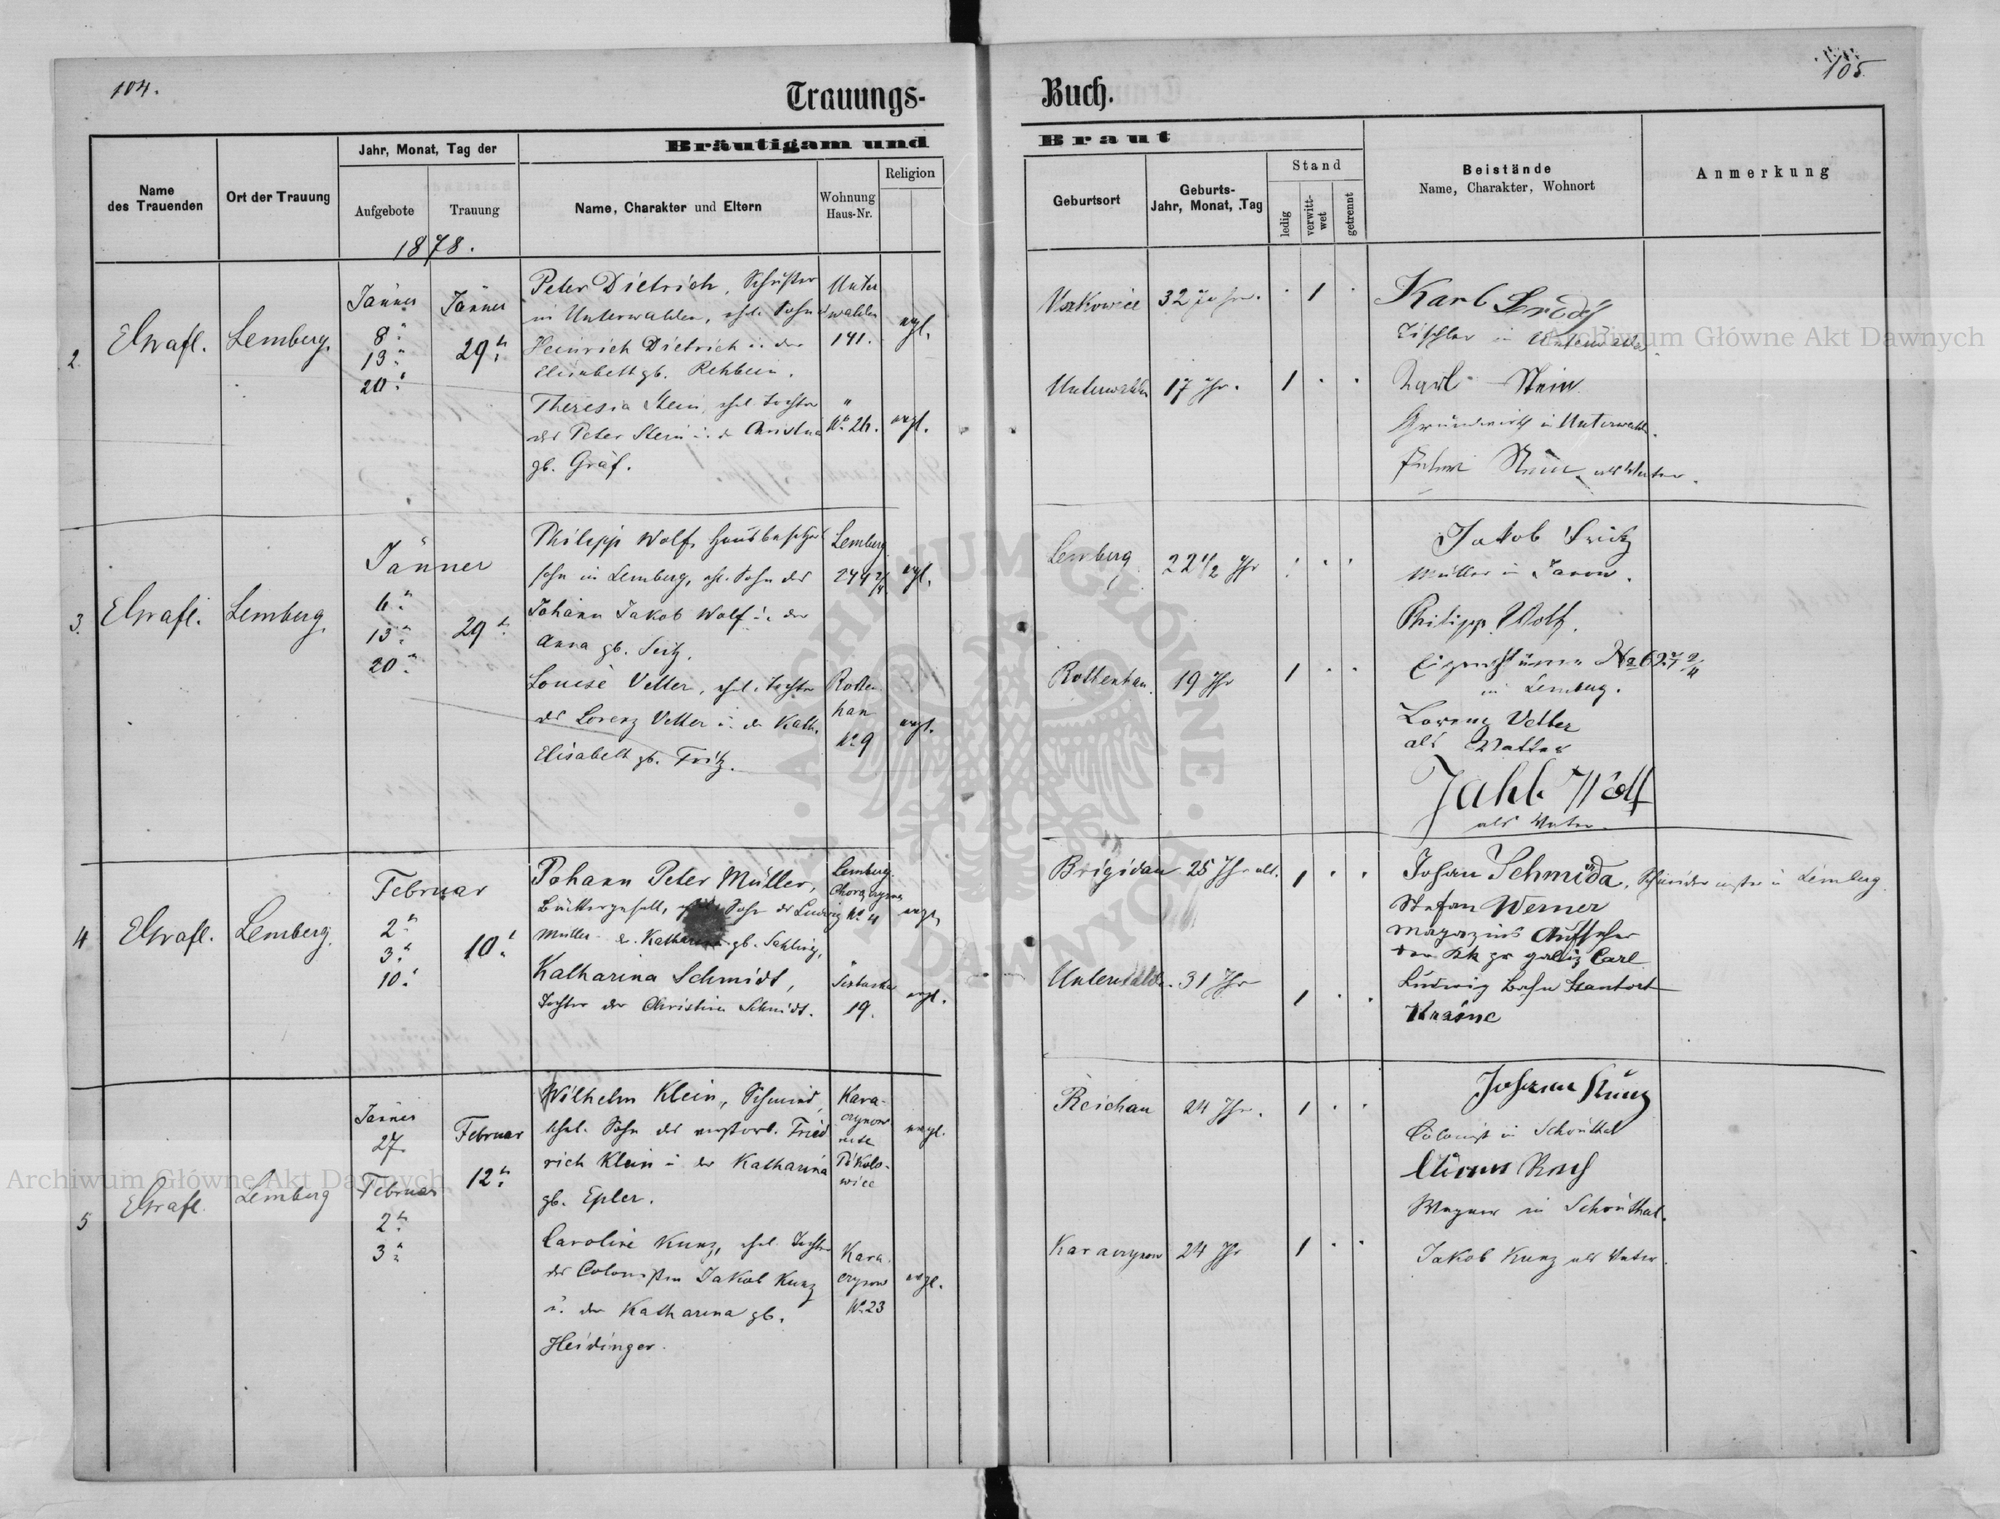 104.
105
Trauungs-
Buch.
Name
des Trauenden
Ort der Trauung
Jahr, Monat, Tag der
Aufgebote
Trauung
1878.
Bräutigam und
Name, Charakter und Eltern
Wohnung
Haus-Nr.
Religion
Braut
Geburtsort
Geburts-
Jahr, Monat, Tag
Stand
ledig
verwitt-
wet
getrennt
Beistände
Name, Charakter, Wohnort
Anmerkung
2.
Lemberg.
Jänner
8
13
20
Jänner
29
Peter Dietrich, Schuster
in Unterwalden, ehl. Sohn d
Heinrich Dietrich u. der
Elisabeth gb. Rehbein.
Unter
walden
141.
evgl.
32 Jahre.
1
Karl
Tischler in Unterwalden
Theresia Stein, ehel. Tochter
des Peter Stein u. d Christina
gb. Gräf.
"
No 26.
evgl.
Unterwalden
17 Jhr.
1
Karl Stein
Grundwirth in Unterwalden.
Peter Stein als Vater.
3.
Lemberg.
Jänner
6
13
20
29
Philipp Wolf, Hausbesitzers
sohn in Lemberg, ehl. Sohn des
Johann Jakob Wolf u. der
Anna gb. Seitz.
Lemberg
evgl.
Lemberg
22 1/2 Jhr
Jakob Fritz
Müller in Janow.
Philipp Wolf.
Eigenthümer No 627 2/4
in Lemberg.
Louise Vetter, ehel. Tochter
des Lorenz Vetter u. der Kath.
Elisabeth gb. Fritz.
Rotten
han
No 9
evgl.
Rottenhan.
19 Jhr
1
Lorenz Vetter
als Vatter
Wolf
als Vater
4
Lemberg.
Februar
2
3
10
10
Johann Peter Müller,
Sohn des Ludwig
Müller u. Katharina gb.
Lemberg
No 4
evgl.
Brigidau
25 Jhr alt.
1
Johan Schmida, Schneidermeister in Lemberg.
Stefan Werner
Magazins Aufseher
der KK pr galiz Carl
Ludwig Bahn Standort
Krasne
Katharina Schmidt,
Tochter der Christina Schmidt.
19.
evgl.
Unterwalden.
31 Jhr
1
5
Lemberg
Jänner
27
Februar
2
3
Februar
12
Wilhelm Klein, Schmied,
ehel. Sohn des verstorb. Fried
rich Klein u der Katharina
gb. Epler.
Kara-
czynow
evgl.
Reichau
24 Jhr.
1
Johann Kunz
Colonist in Schönthal
Wagner in Schönthal.
Caroline Kunz, ehel. Tochter
des Colonisten Jakob Kunz
u. der Katharina gb.
Heidinger.
Kara
czynow
No 23
evgl.
Karaczynow
24 Jhr
1
Jakob Kunz als Vater.
Archiwum Główne Akt Dawnych
Archiwum Główne Akt Dawnych
ARCHIWUM GŁÓWNE AKT DAWNYCH